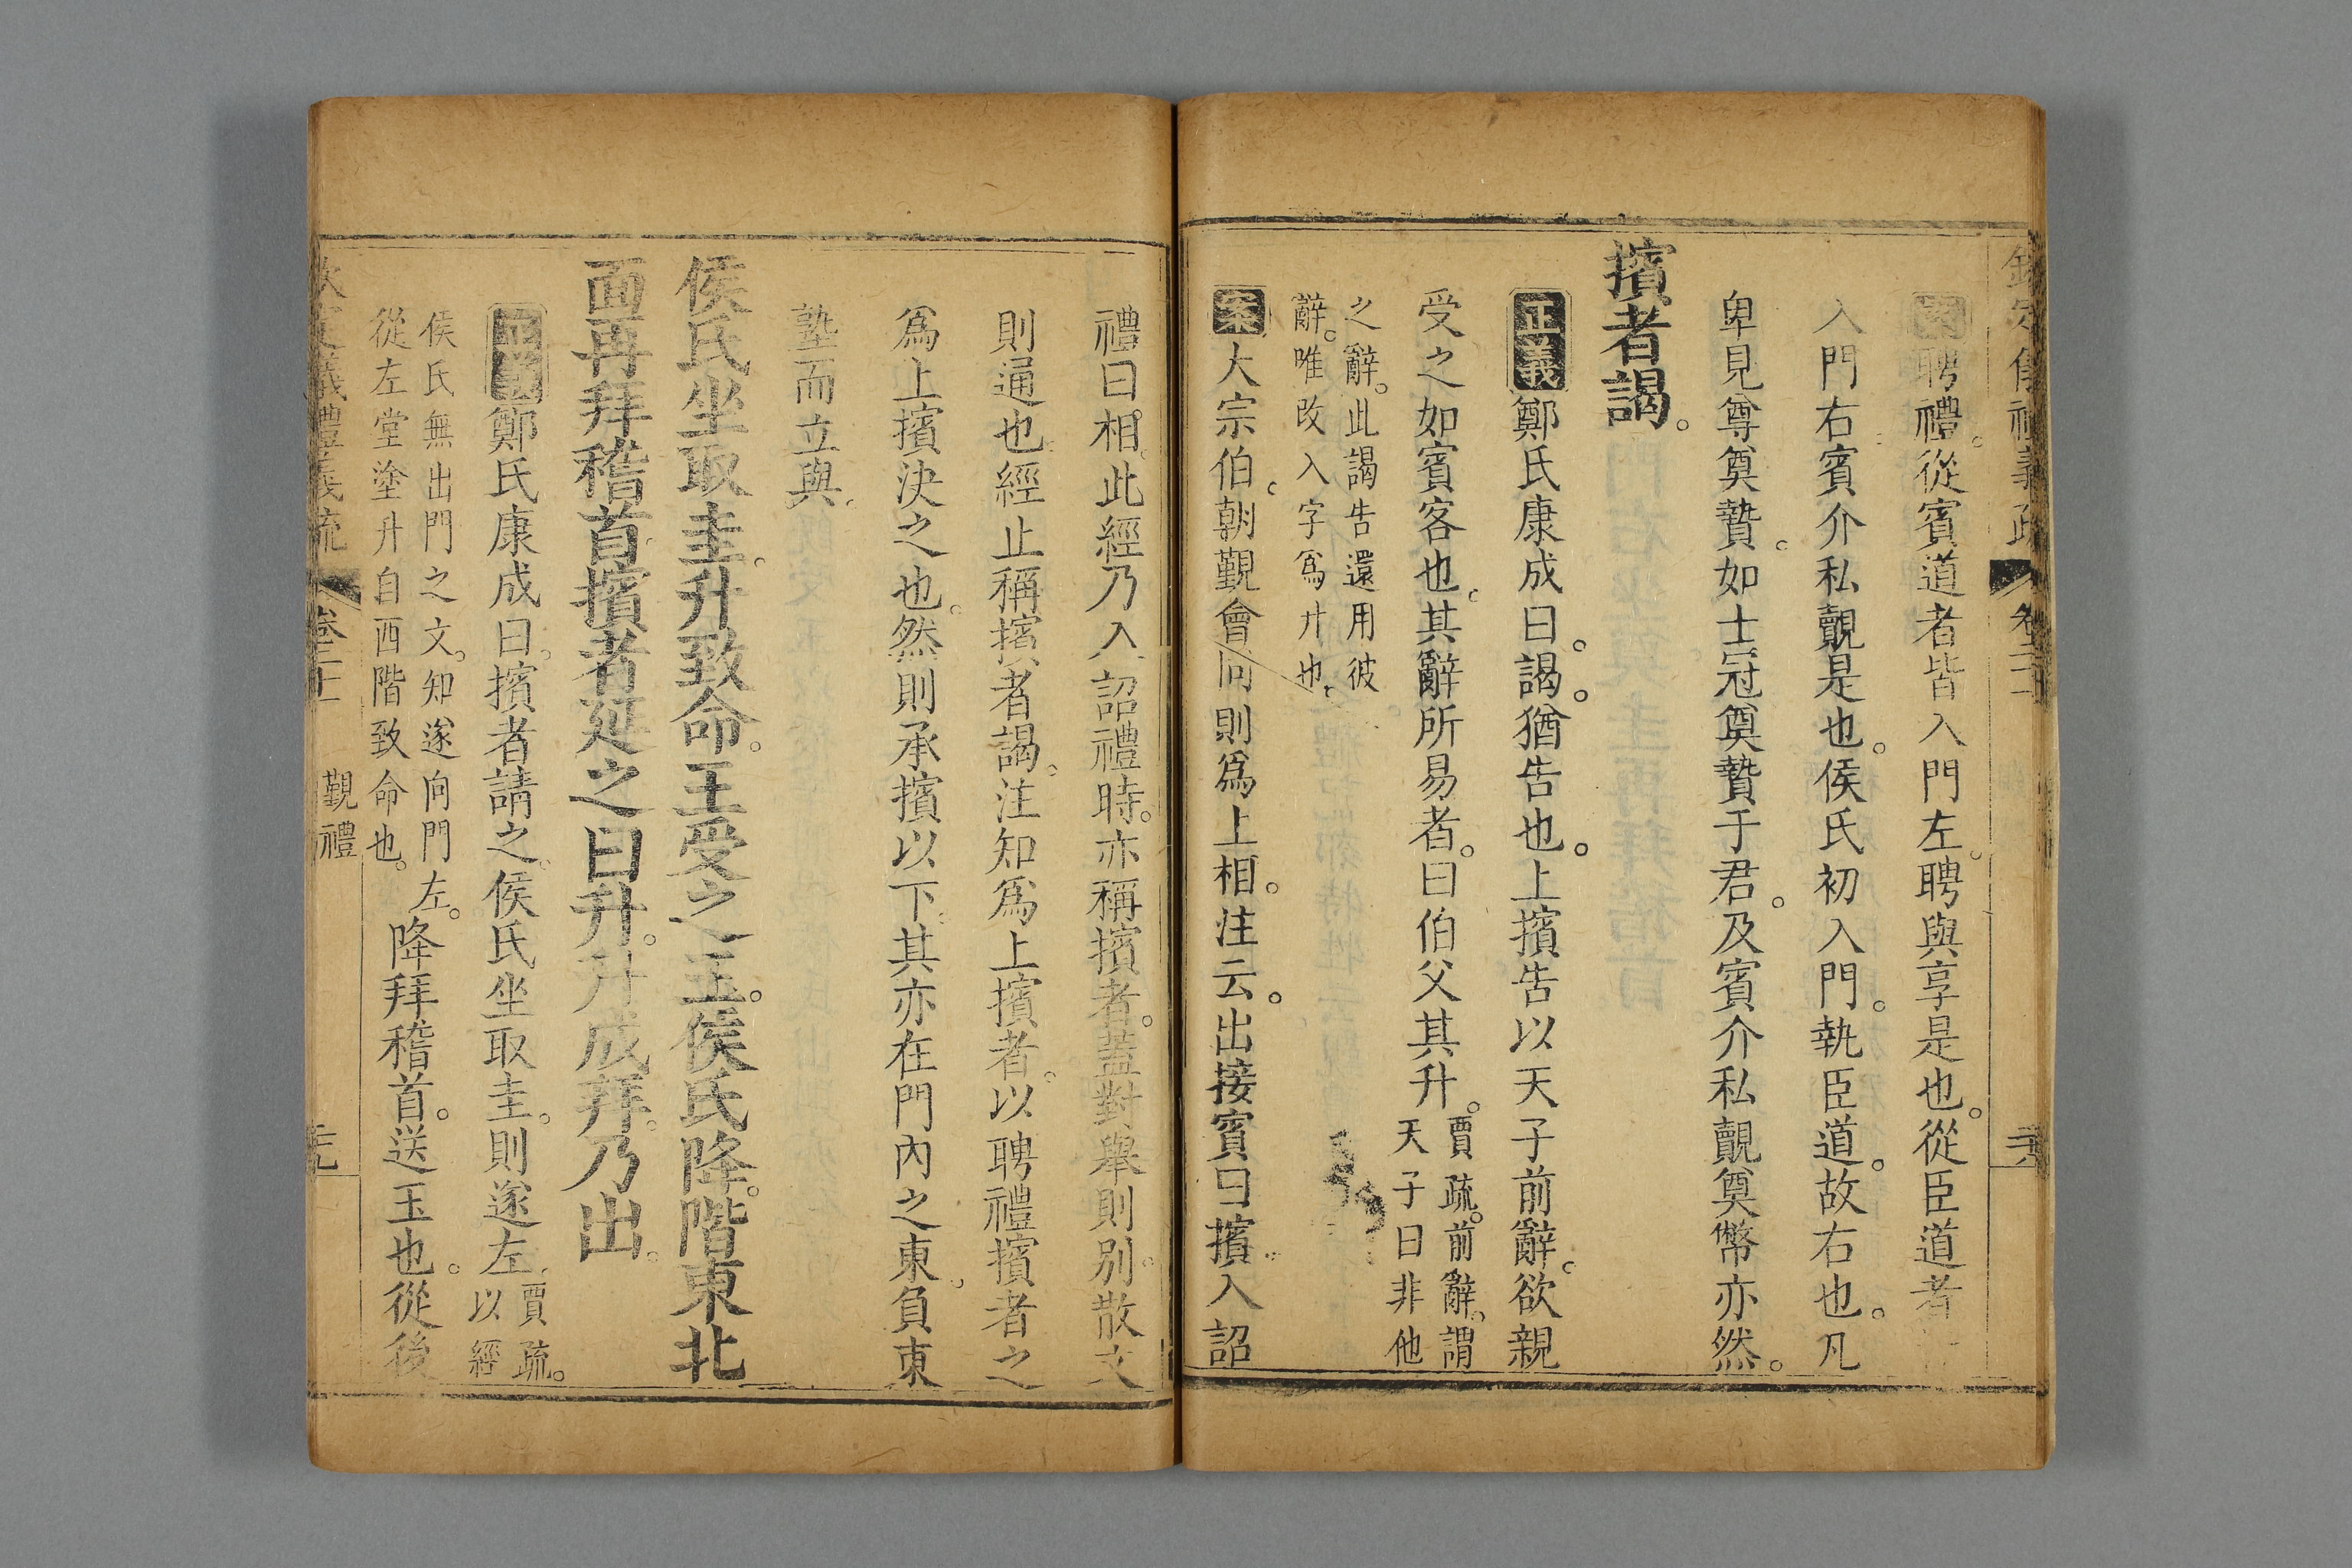 聘禮。從賓道者皆入門左。聘與享是也。從臣道者
入門右。賓介私覿是也。侯氏初入門。執臣道。故右也。凡
卑見尊奠贄。如士冠奠贄于君。及賓介私覿奠幣亦然。
擯者謁。
正義鄭氏康成曰。謁。猶告也。上擯告以天子前辭。欲親
受之如賓客也。其辭所易者。曰伯父其升。
賈疏。前辭。謂
天子曰非他
之辭。此謁告還用彼
辭。唯改入字爲升也。
案大宗伯。朝覲會同則爲上相。注云。出接賓曰擯。入詔
禮曰相。此經乃入詔禮時。亦稱擯者。蓋對舉則別。散文
則通也。經止稱擯者謁。注知爲上擯者。以聘禮擯者之
爲上擯決之也。然則承擯以下。其亦在門內之東。負東
塾而立與。
侯氏坐取圭。升致命。王受之玉。侯氏降。階東北
面再拜稽首。擯者延之曰升。升成拜。乃出。
正義鄭氏康成曰。擯者請之。侯氏坐取圭。則遂左。
賈疏。
以經
侯氏無出門之文。知遂向門左。
從左堂塗升自西階致命也。
降拜稽首。送玉也。從後
欽定儀禮義疏 卷二十一 覲禮 二九